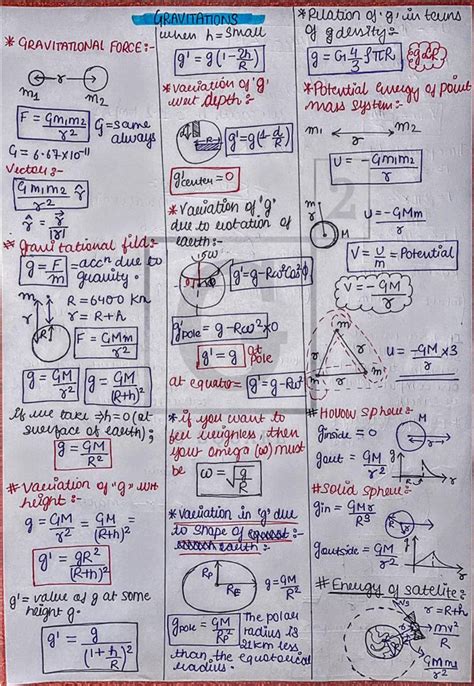 GRAVITATIONS
* GRAVITATIONAL FORCE:-
r
m1 m2
F = Gm1m2/r²
G = same always
G = 6.67×10-11
Vector:-
Gm1m2/r² r̂
r̂ = r⃗/|r⃗|
* Gravitational field:-
g = F/m = accn due to gravity.
m
R = 6400 Km
r = R+h
F = GMm/r²
g = GM/r²
g = GM/(R+h)²
If we take h=0 (at
surface of earth);
g = GM/R²
# Variation of "g" wrt
height:-
g = GM/r² = GM/(R+h)²
g' = gR²/(R+h)²
g' = value of g at some
height g.
g' = g/(1+h/R)²
when h = small
g' = g(1-2h/R)
* Variation of 'g'
wrt depth:-
g' = g(1-d/R)
g'center = 0
* Variation of 'g'
due to rotation of
earth:-
g' = g-Rω²Cos²ϕ
g'pole = g-Rω²×0
g' = g at pole
at equator = g' = g-Rω²
* if you want to
feel weigness, then
your omega (ω) must
be ω = √g/R
* Variation in 'g' due
to shape of
earth:-
Rp
RE
g = GM/R²
gpole = GM/R²
The polar
radius is
21km less
than the equatorial
radius.
* Relation of 'g' in terms
of g density:-
g = G 4/3 ρπR
* Potential Energy of point
mass system:-
m1 r m2
U = -Gm1m2/r
m
r
M
U = -GMm/r
V = U/m = Potential
V = -GM/r
m
r r
m r m
U = -GM/r ×3
# Hollow sphere:-
M
ginside = 0
gout = GM/r²
# Solid sphere:-
gin = GMr/R³
goutside = GM/r²
# Energy of satelite:-
r = R+h
mv²/R
GMm/r²